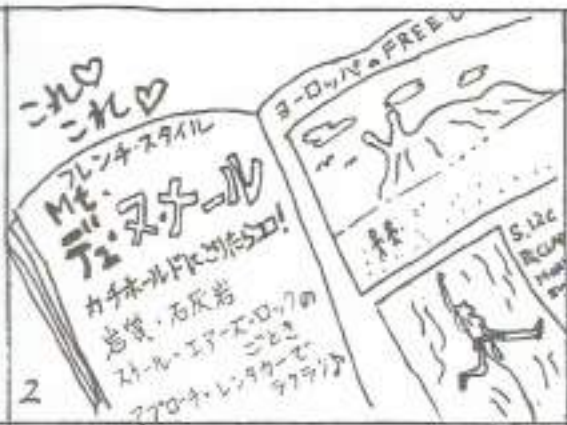 これ♡
これ♡
フレンチ・スタイル
Mt.
デュ・ヌ・ナール
カチホールドにごりたらココ!
岩質・石灰岩
スケール・エアーズ・ロックの
ごとき
アプローチ・レンタカーで
ラクラク♪
ヨーロッパのFREE
5.12c
2